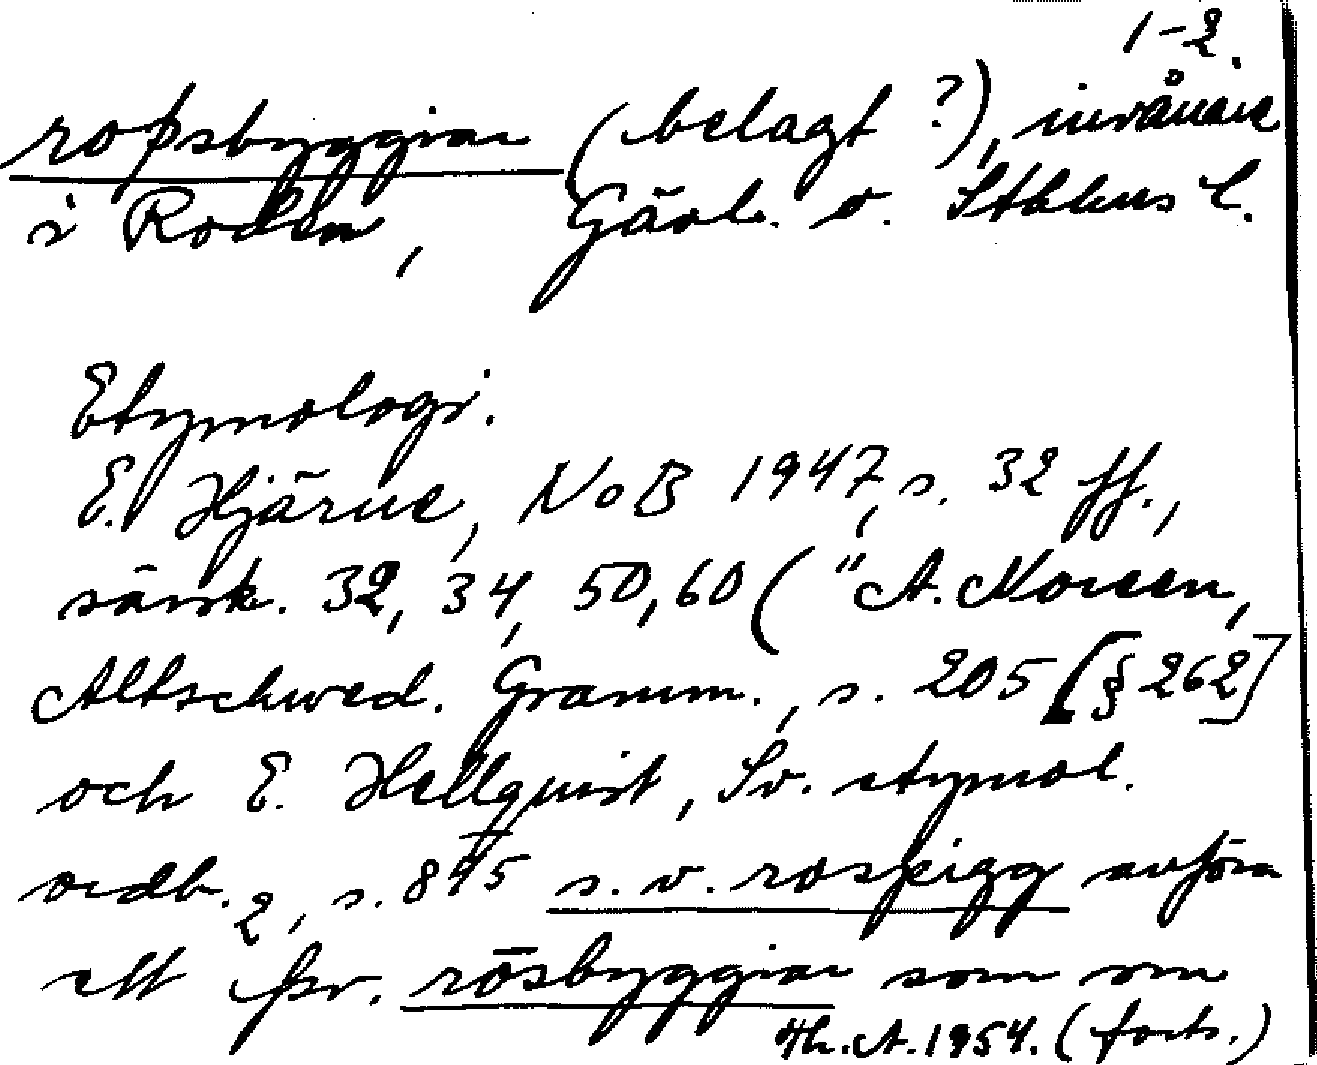 1-2.
roþsbyggiar (belagt ?), invånare
i Roden, Gävl. o. Sthlms l.
Etymologi.
E. Hjärne, NoB 1947, s. 32 ff.,
särsk. 32, 34, 50, 60 ("A. Noreen,
Altschwed. Gramm., s. 205 [§ 262]
och E. Hellquist, Sv. etymol.
ordb. 2, s. 845 s. v. rospigg anföra
ett fsv. rōsbyggiar som om
Th. A. 1954. (forts.)